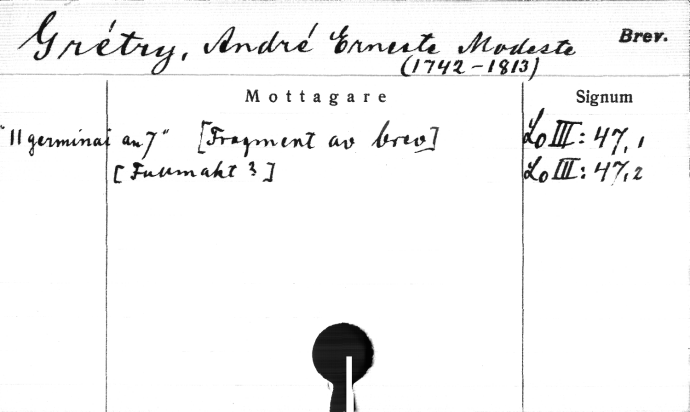 Grétry, André Erneste Modeste Brev.
(1742-1813)
Mottagare Signum
"11 germinal an 7" [Fragment av brev] Lo III: 47,1
[Fullmakt?] Lo III: 47,2